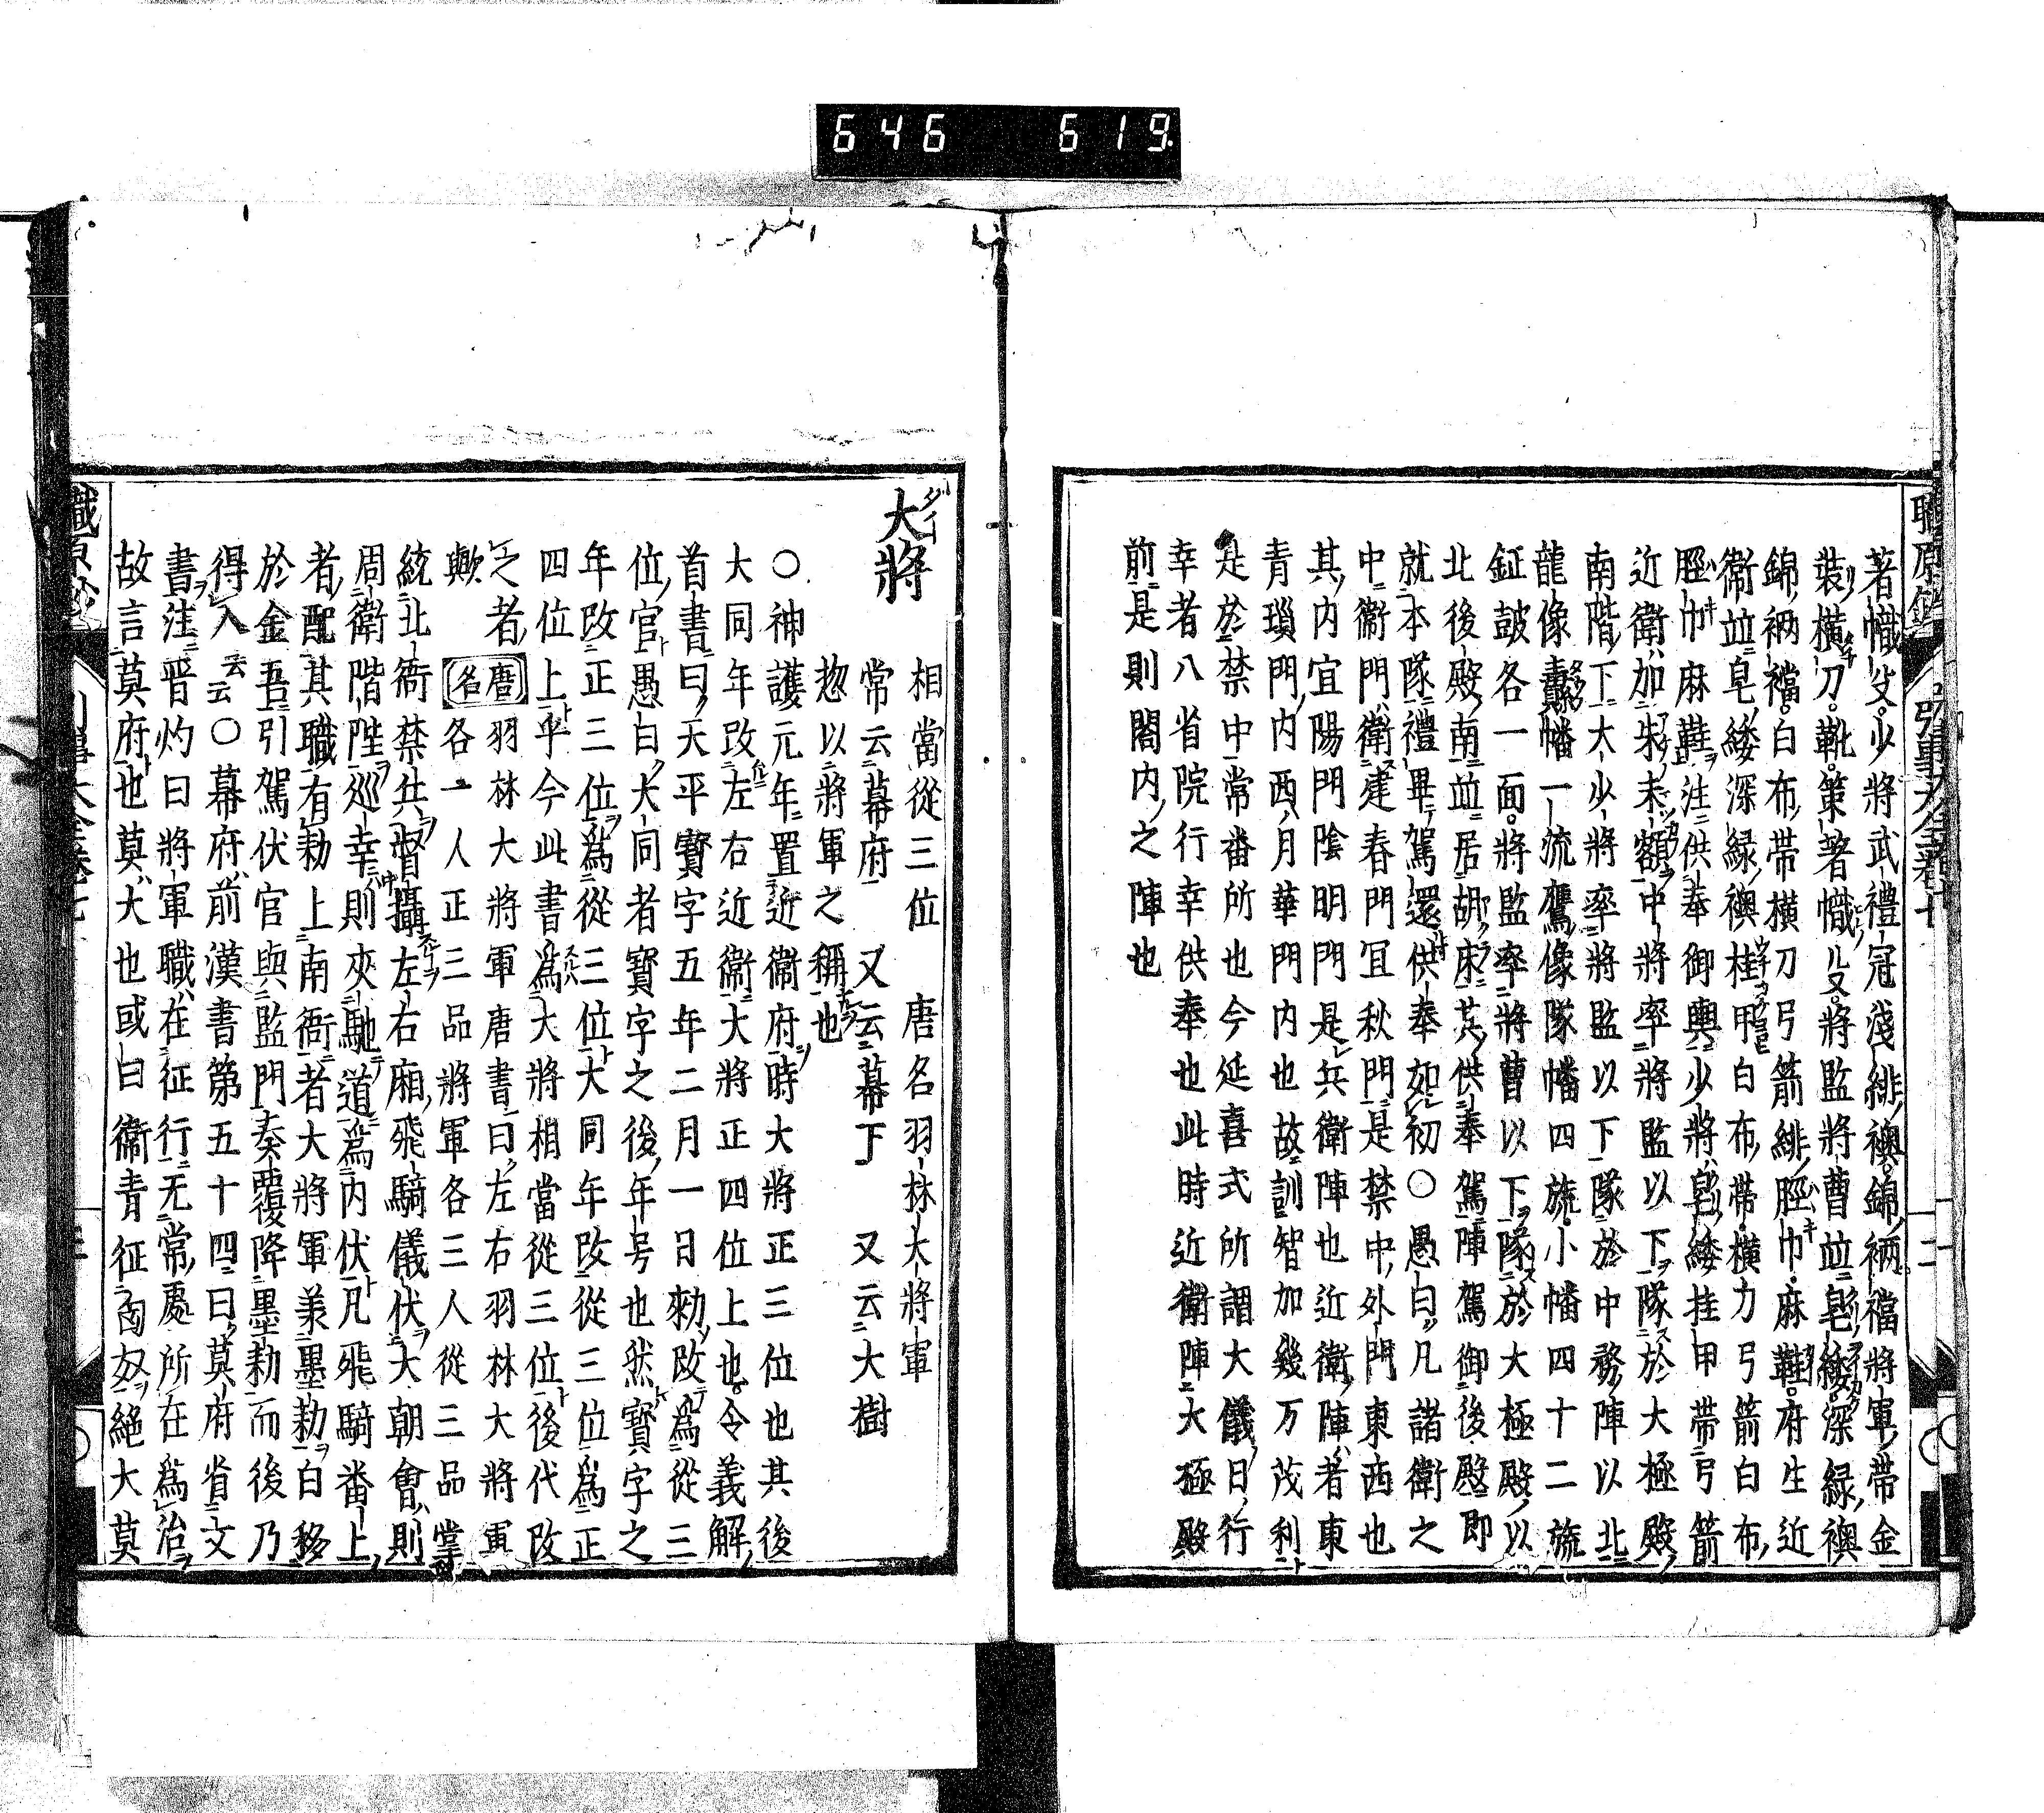 646 619
著幟殳。少將武禮冠淺緋襖。錦裲襠將軍帶金
裝橫刀。靴。策著幟殳。將監將曹竝皂緌。深緑襖
錦裲襠。白布帶橫刀弓箭緋脛巾。麻鞋。府生近
衞竝皂緌深緑襖桂甲白布帶。橫刀弓箭白布
脛巾麻鞋注供奉御輿少將皂緌挂甲帶弓箭
近衞加朱末額中將率將監以下隊於大極殿
南階下大少將率將監以下隊於中務陣以北
龍像纛幡一流鷹像隊幡四旒。小幡四十二旒
鉦鼓各一面。將監率將曹以下隊於大極殿以
北後殿南竝居胡床其供奉駕陣駕御後殿即
就本隊禮畢駕還供奉如初〇愚曰凡諸衞之
中衞門衞建春門宜秋門是禁中外門東西也
其内宜陽門陰明門是兵衞陣也近衞陣者東
青瑣門内西月華門内也故訓智加幾万茂利
是於禁中常番所也今延喜式所謂大儀日行
幸者八省院行幸供奉也此時近衞陣大極殿
前是則閤内之陣也
大將
相當從三位 唐名羽林大將軍
常云幕府 又云幕下 又云大樹
惣以將軍之稱也
〇神護元年置近衞府時大將正三位也其後
大同年改左右近衞大將正四位上也。令義解
首書曰天平寳字五年二月一日勑改爲從三
位官愚曰大同者寳字之後年号也然寳字之
年改正三位爲從三位大同年改從三位爲正
四位上乎今此書爲大將相當從三位後代改
之者
歟 唐名 羽林大將軍唐書曰左右羽林大將軍
各一人正三品將軍各三人從三品掌
統北衙禁兵督攝左右廂飛騎儀伏大朝會則
周衞階陛巡幸則夾馳道爲内伏凡飛騎番上
者配其職有勅上南衙者大將軍羕墨勅白移
於金吾引駕伏官與監門奏覆降墨勅而後乃
得入云云〇幕府前漢書第五十四曰莫府省文
書注晋灼曰將軍職在征行无常處所在爲治
故言莫府也莫大也或曰衞青征匈奴絕大莫